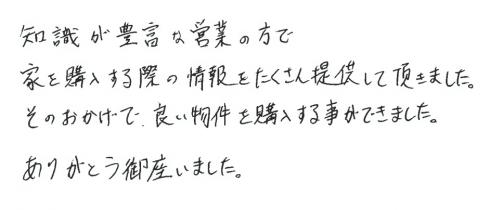 知識が豊富な営業の方で
家を購入する際の情報をたくさん提供して頂きました。
そのおかげで、良い物件を購入する事ができました。
ありがとう御座いました。